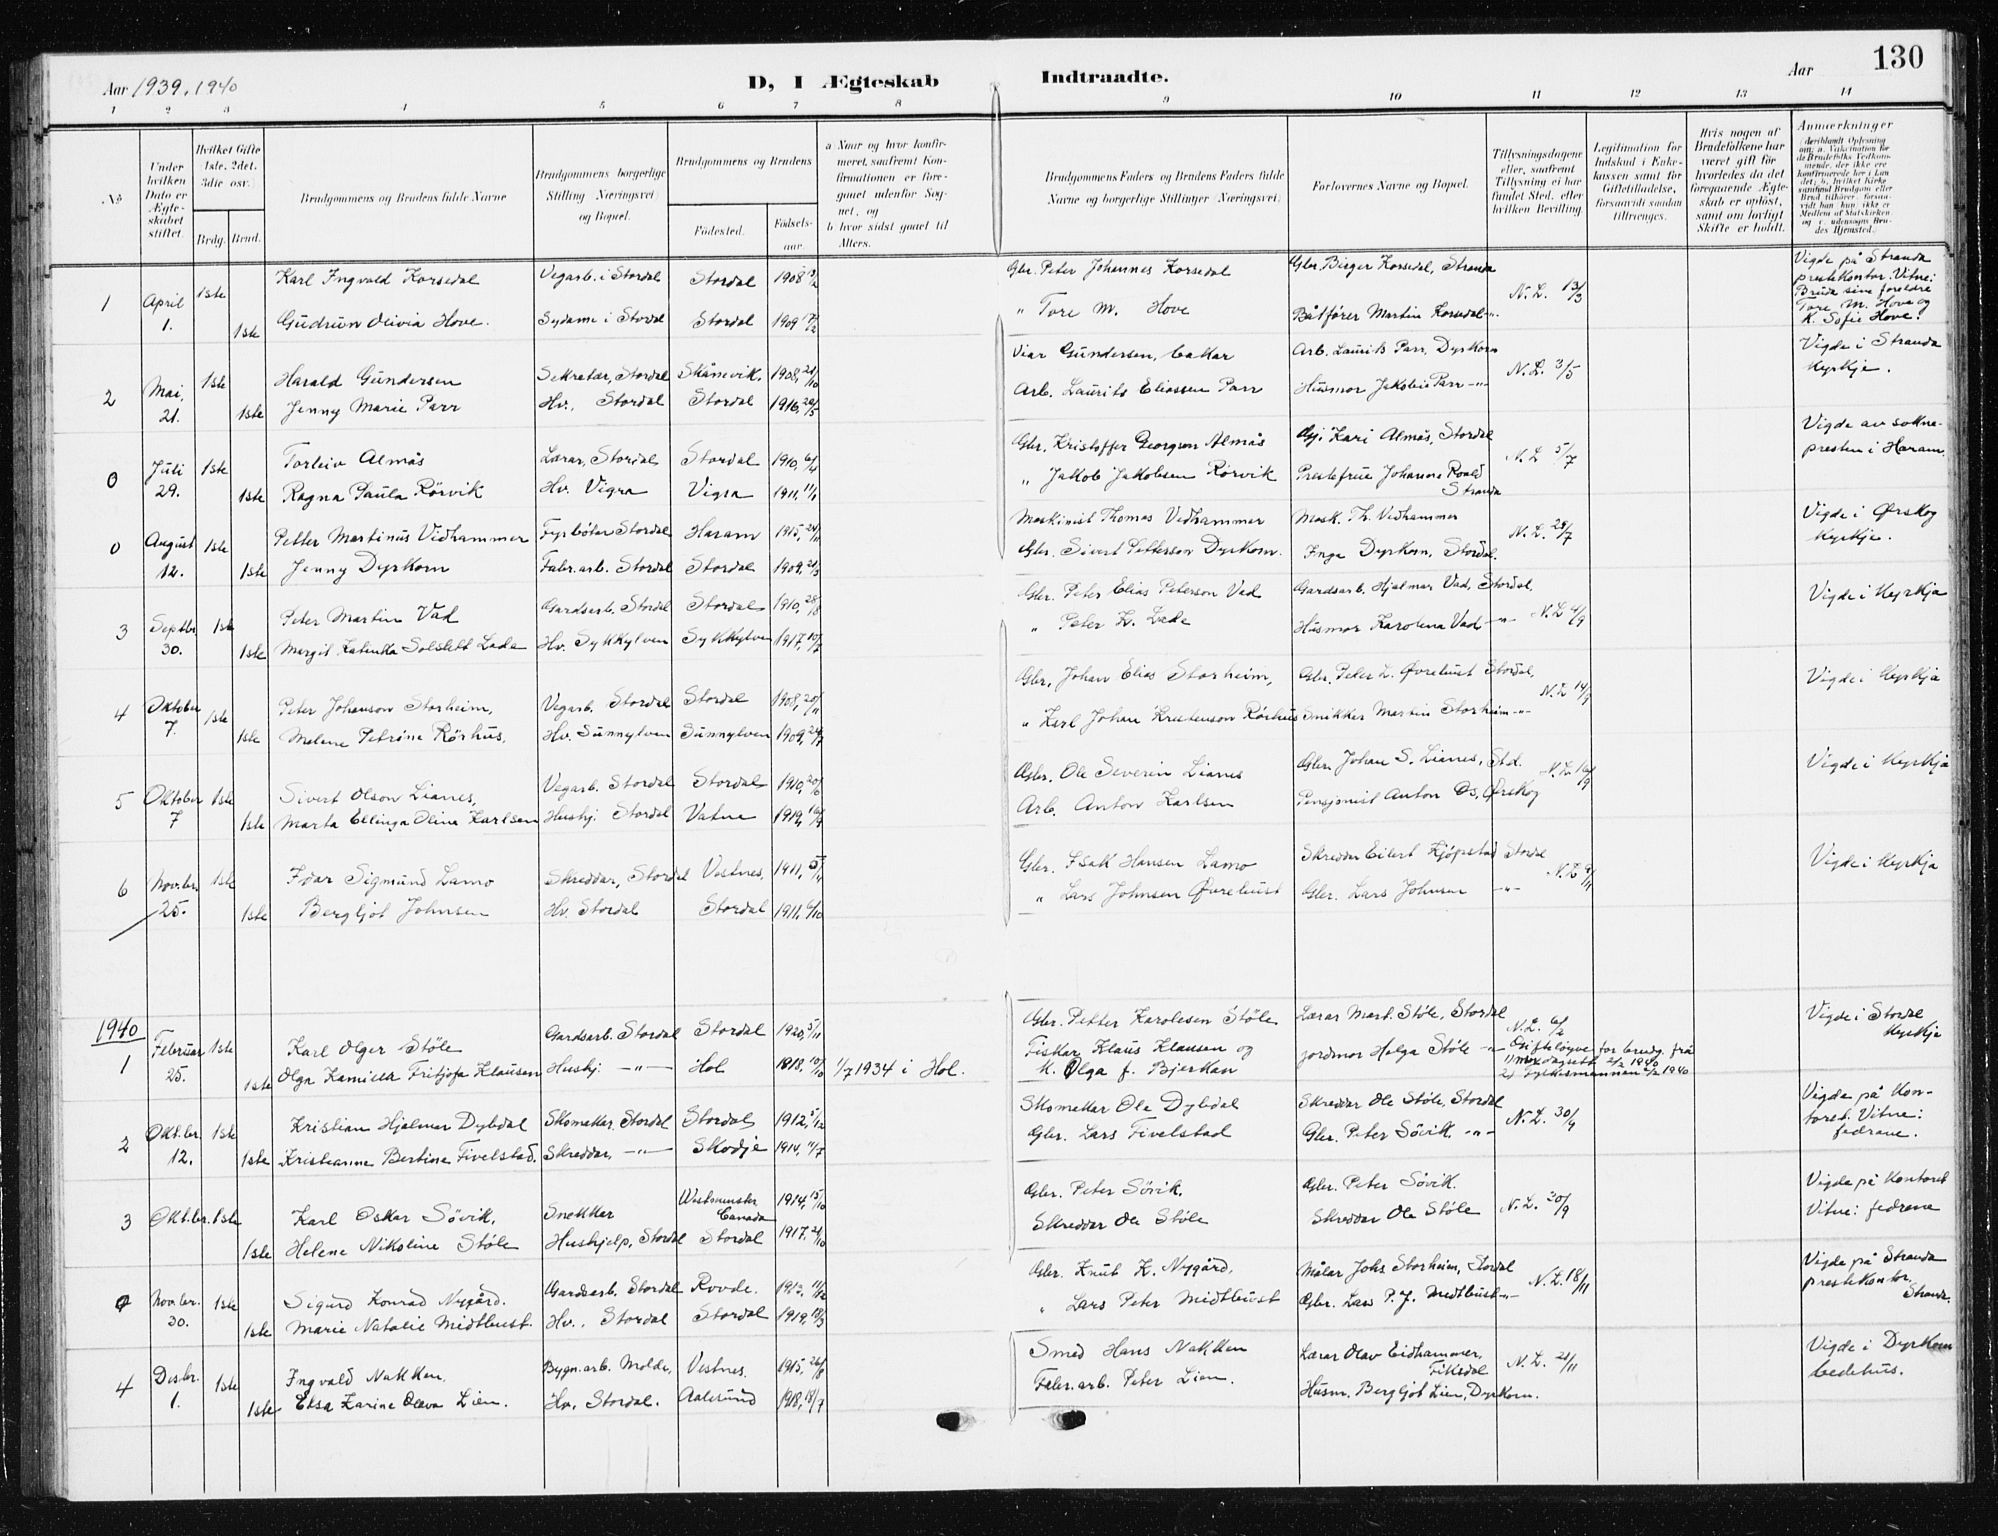 130
Aar 1939, 1940
D, I Ægteskab Indtraadte.
Aar
1 2 3 4 5 6 7 8 9 10 11 12 13 14
No.
Under hvilken Dato er Ægteskabet stiftet.
Hvilket Gifte 1ste, 2det, 3die osv.
Brdg. Brud.
Brudgommens og Brudens fulde Navne
Brudgommens borgerlige Stilling Næringsvei og Bopæl.
Brudgommens og Brudens
Fødested.
Fødselsaar.
a Naar og hvor konfirmeret, saafremt Konfirmationen er foregaaet udenfor Sognet, og
b hvor sidst gaaet til Alters.
Brudgommens Faders og Brudens Faders fulde Navne og borgerlige Stillinger (Næringsvei)
Forlovernes Navne og Bopæl.
Tillysningsdagene eller, saafremt Tillysning ei har fundet Sted, efter hvilken Bevilling.
Legitimation for Indskud i Enkekassen samt for Giftetilladelse, forsaavidt saadan tiltrænges.
Hvis nogen af Brudefolkene har været gift før hvorledes da det foregaaende Ægteskab er opløst, samt om lovligt Skifte er holdt.
Anmærkninger
1 April 1. 1ste Karl Ingvald Korsedal Vegarb. i Stordal Stordal 1908 Gbr. Peter Johannes Korsedal Gbr. Birger Korsedal, Stranda N.L. 13/3 Vigde på Stranda prestekontor. Vitne: Bruda sine foreldre Tore M. Hove og K. Sofie Hove.
1ste Gudrun Olivia Hove. Sydame i Stordal Stordal 1909 " Tore M. Hove Båtfører Martin Korsedal -"-
2 Mai, 21. 1ste Harald Gundersen Sekretær, Stordal Skånevik. 1908, 21/10 Gundersen, bakar Arb. Laurits Parr, Dyrkorn N.L. 3/5 Vigde i Stranda kyrkje.
1ste Jenny Marie Parr Hv. Stordal Stordal 1916, Arb. Laurits Eliassen Parr Husmor Jakobie Parr -"-
0 Juli 29. 1ste Torleiv Almås Lærar, Stordal Stordal 1910, 6/4 Gbr. Kristoffer Georgson Almås Kari Almås, Stordal N.L. 5/7 Vigde av soknepresten i Haram.
1ste Ragna Paula Rörvik Hv. Vigra Vigra 1911, 11/1 " Jakob Jakobsen Rörvik Prestefrue Johanna Roald Stranda
0 August 12. 1ste Petter Martinus Vidhammer Fyrbøtar Stordal Haram 1915, 24/11 Maskinist Thomas Vedhammer Mask. Th. Vedhammer N.L. 28/7 Vigde i Ørskog kyrkje.
1ste Jenny Dyrkorn Fabr.arb. Stordal Stordal 1909, 21/3 Gbr. Sivert Petterson Dyrkorn. Inga Dyrkorn, Stordal.
3 Septbr. 30. 1ste Peter Martin Vad Gardsarb. Stordal Stordal 1910, 28/8 Gbr. Peter Elias Peterson Vad Gardsarb. Hjalmar Vad, Stordal, N.L. 4/9 Vigde i kyrkja
1ste Margit Katinka Solslett Lade Hv. Sykkylven Sykkylven 1917, 10/7 " Peter K. Lade Husmor Karolena Vad -"-
4 Oktober 7. 1ste Peter Johanson Storheim, Vegarb. Stordal Stordal 1908, 20/11 Gbr. Johan Elias Storheim, Gbr. Peter L. Øvrebust Stordal, N.L. 14/9 Vigde i kyrkja
1ste Malene Petrine Rørhus, Hv. Sunnylven Sunnylven 1909, 24/7 " Karl Johan Kristenson Rørhus Snikker Martin Storheim -"-
5 Oktober 7 1ste Sivert Olson Lianes, Vegarb. Stordal Stordal 1910, 20/6 Gbr. Ole Severin Lianes Gbr. Johan S. Lianes, Std. N.L. 16/9 Vigde i kyrkja
1ste Marta Ellinga Oline Karlsen Hushj. Stordal Vatne 1919, 16/9 Arb. Anton Karlsen Pensjonist Anton Os, Ørskog
6 Nov.br. 25. 1ste Idar Sigmund Lamo Skreddar, Stordal Vestnes, 1911, Gbr. Isak Hansen Lamo Skreddar Eilert Kjøpstad Stordal N.L. 9/11 Vigde i kyrkja
1ste Bergljot Johnsen Hv. Stordal Stordal 1911, 6/10 " Lars Johnsen Øvrebust Gbr. Lars Johnsen -"-
1940
1 Februar 25. 1ste Karl Olger Støle Gardsarb. Stordal Stordal 1920, 5/11 Gbr. Petter Karolesen Støle Lærar Mart. Støle, Stordal N.L. 6/2 Vigde i Stordal kyrkje
1ste Olga Kamilla Fritjofa Klausen Hushj. -"- Hol 1918, 10/10 1/7 1934 i Hol. Fiskar Klaus Klausen og K. Olga f. Bjerkan Jordmor Helga Støle -"- Gifteløyve for brudg. frå 2) Fylkesmannen 1940
2 Okt.br. 12. 1ste Kristian Hjalmar Dybdal Skomakar, Stordal Stordal 1912, 5/12 Skomakar Ole Dybdal Skreddar Ole Støle, Stordal N.L. 30/9 Vigde på kontoret. Vitne: fedrane.
1ste Kristianna Bertine Fivelstad. Skreddar, -"- Skodje 1914, 11/7 Gbr. Lars Fivelstad Gbr. Peter Søvik. -"-
3 Okt.br. 1ste Karl Oskar Søvik, Snekkar Westminster Canada 1914, 15/10 Gbr. Peter Søvik. Gbr. Peter Søvik. N.L. 30/9 Vigde på kontoret Vitne: fedrane
1ste Helene Nikoline Støle Hushjelp, Stordal Stordal 1917, 21/10 Skreddar Ole Støle Skreddar Ole Støle
0 Nov.br. 30. 1ste Sigurd Konrad Nygård. Gardsarb. Stordal Rovde. 1913, 11/12 Gbr. Knut K. Nygård, Målar Johs Storheim, Stordal N.L. 18/11 Vigde på Stranda prestekontor, Stranda.
1ste Marie Natalie Midtbust. Hv. Stordal Stordal 1919, 18/3 " Lars Peter Midtbust Gbr. Lars P.J. Midtbust -"-
4 Desbr. 1. 1ste Ingvald Nakken, Bygn.arb. Molde, Vestnes 1915, 26/8 Smed Hans Nakken Lærar Olav Eidhammer, Fiksdal N.L. 21/11 Vigde i Dyrkorn bedehus.
1ste Elsa Karine Olava Lien. Hv. Stordal. Aalesund 1918, 18/7 Fabr.arb. Peter Lien. Husm. Bergljot Lien, Dyrkorn.